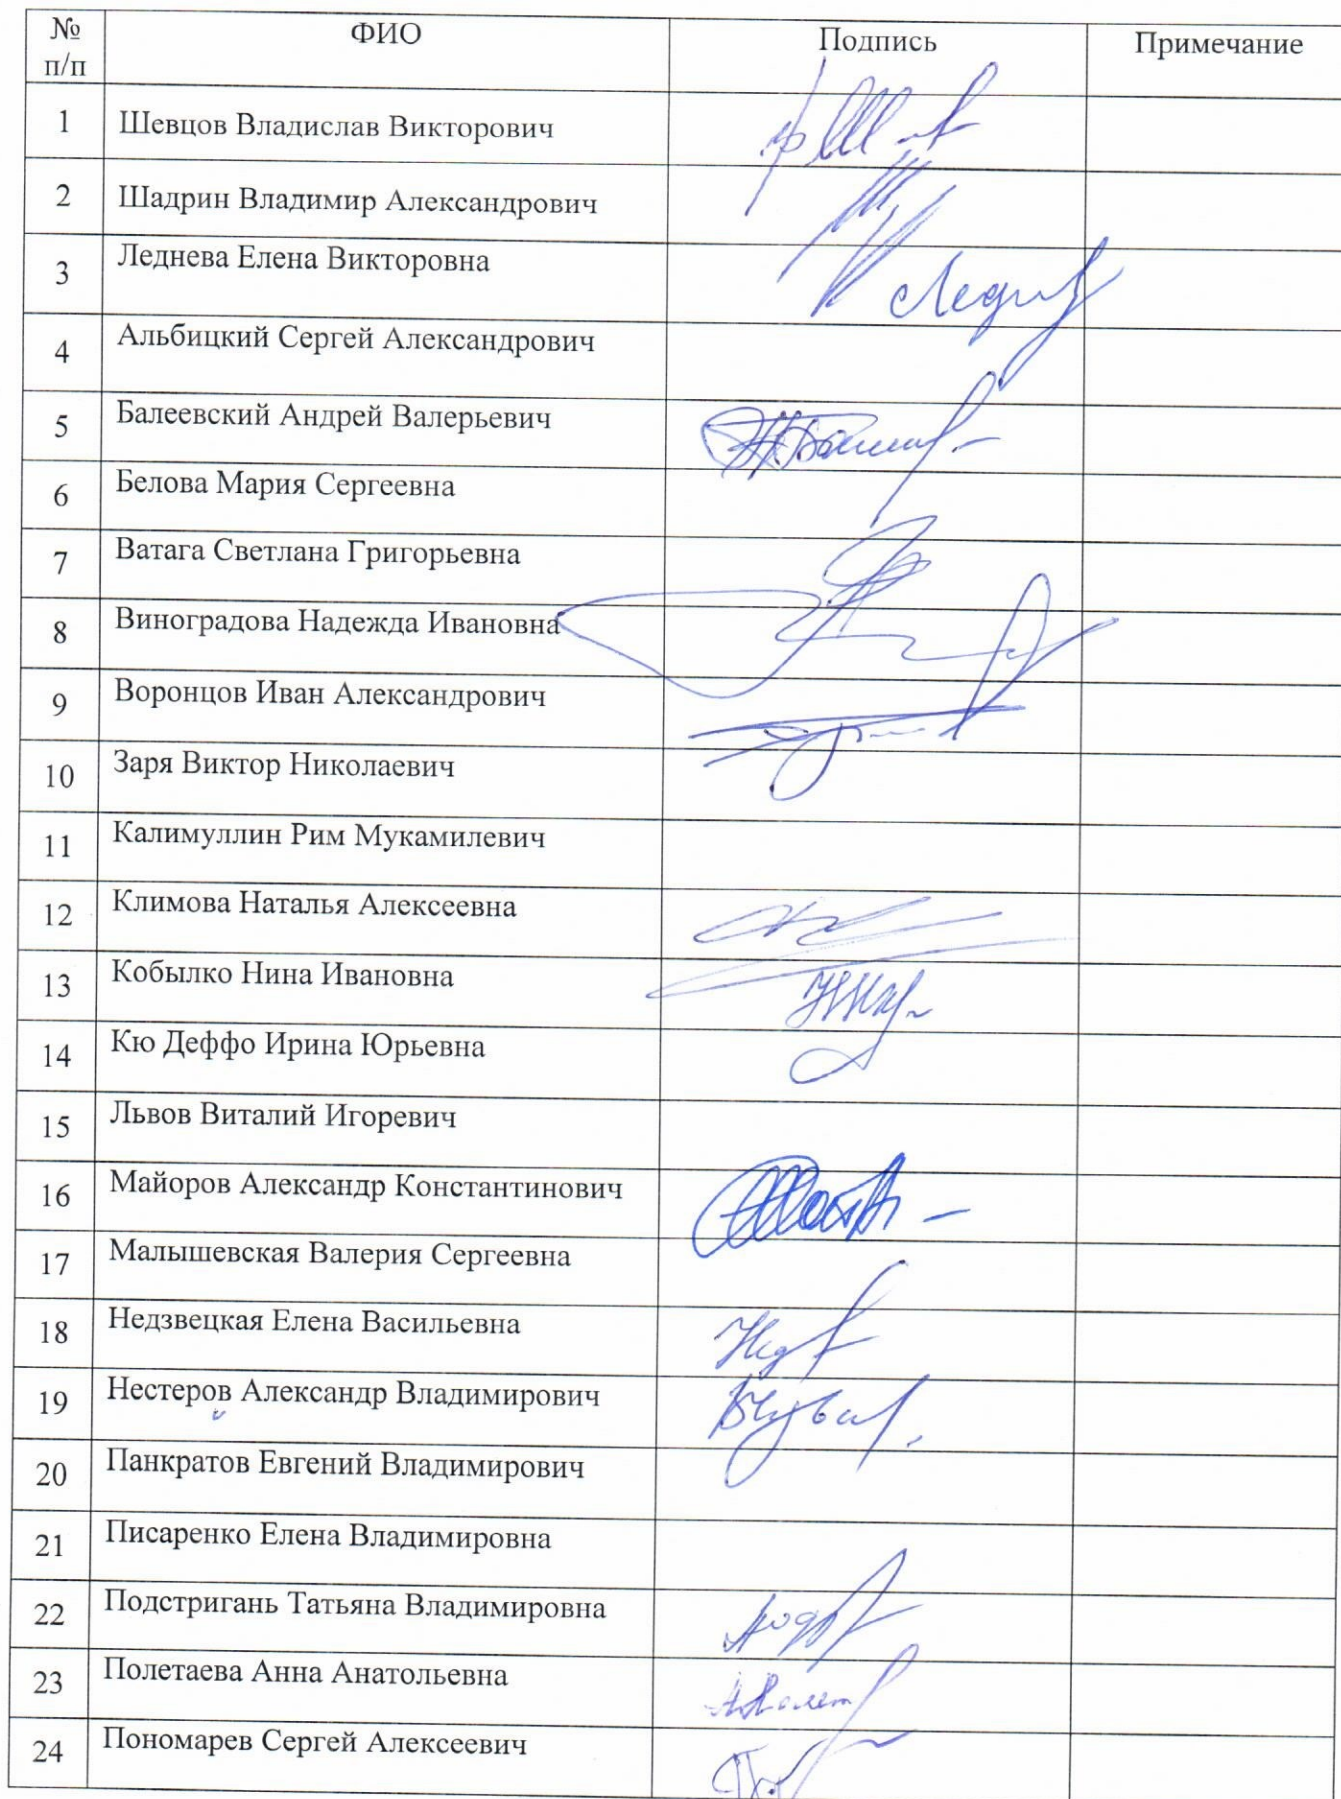 № п/п ФИО Подпись Примечание
1 Шевцов Владислав Викторович
2 Шадрин Владимир Александрович
3 Леднева Елена Викторовна
4 Альбицкий Сергей Александрович
5 Балеевский Андрей Валерьевич
6 Белова Мария Сергеевна
7 Ватага Светлана Григорьевна
8 Виноградова Надежда Ивановна
9 Воронцов Иван Александрович
10 Заря Виктор Николаевич
11 Калимуллин Рим Мукамилевич
12 Климова Наталья Алексеевна
13 Кобылко Нина Ивановна
14 Кю Деффо Ирина Юрьевна
15 Львов Виталий Игоревич
16 Майоров Александр Константинович
17 Малышевская Валерия Сергеевна
18 Недзвецкая Елена Васильевна
19 Нестеров Александр Владимирович
20 Панкратов Евгений Владимирович
21 Писаренко Елена Владимировна
22 Подстригань Татьяна Владимировна
23 Полетаева Анна Анатольевна
24 Пономарев Сергей Алексеевич